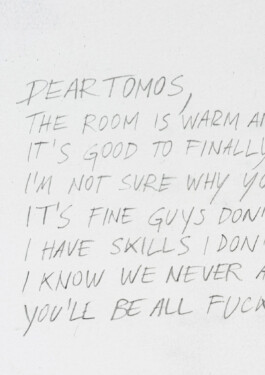 DEAR TOMOS,
THE ROOM IS WARM AN
IT'S GOOD TO FINALLY
I'M NOT SURE WHY YO
IT'S FINE GUYS DON'
I HAVE SKILLS I DON'
I KNOW WE NEVER A
YOU'LL BE ALL FUCK